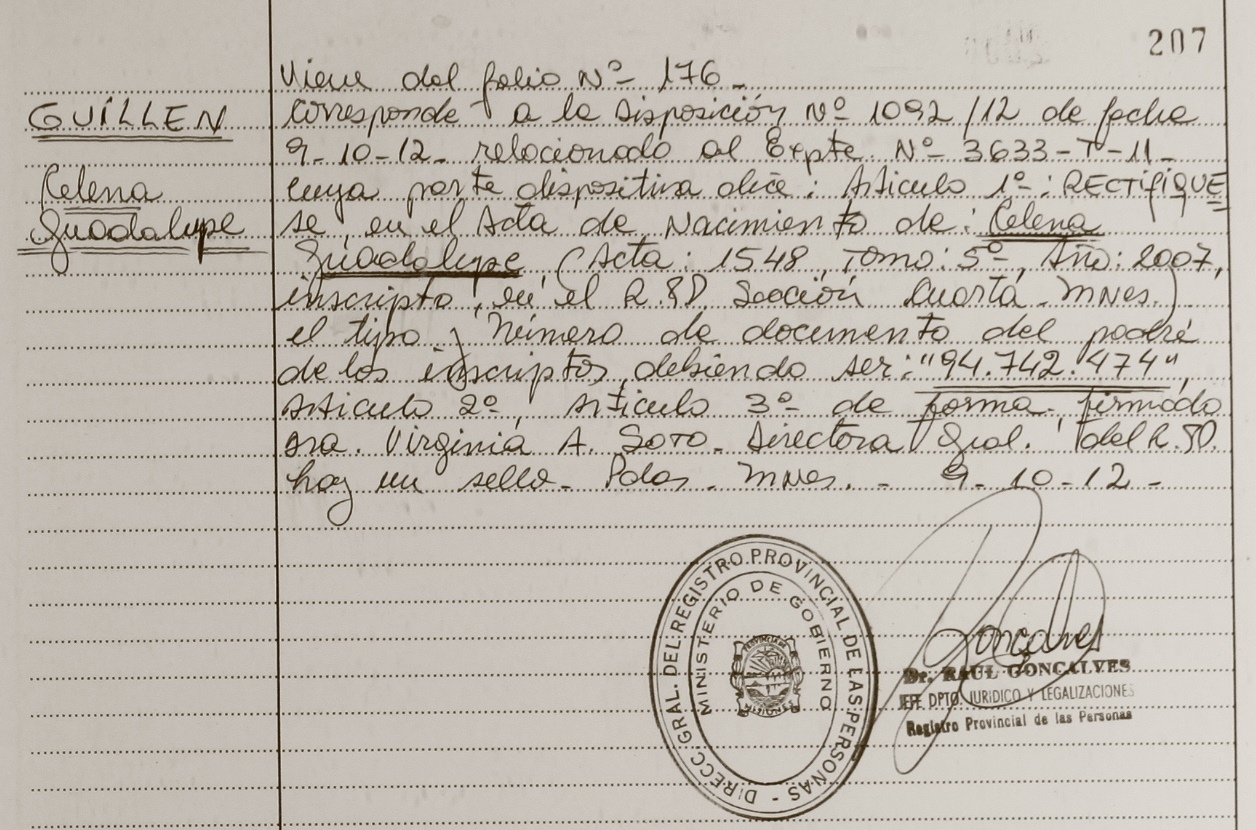 207
Viene del folio Nº 176 -
GUILLEN
Corresponde a la Disposición Nº 1092/12 de fecha
9-10-12- relacionado al Expte. Nº 3633-T-11-
Celena
Guadalupe
cuya parte dispositiva dice: Artículo 1º: RECTIFIQUE
se, en el Acta de Nacimiento de: Celena
Guadalupe, (Acta: 1548, Tomo: 5º, Año: 2007,
inscripto, en el R.P.P. Sección Cuarta - Mnes.)
el tipo y Número de documento del padre
de los inscriptos, debiendo ser: "94.742.474",
Artículo 2º, Artículo 3º de forma. firmado
Sra. Virginia A. Soto - Directora Gral. del R.P.P.
hay un sello - Pdas - Mnes. - 9-10-12 -
DIRECC. GRAL. DEL REGISTRO PROVINCIAL DE LAS PERSONAS -
MINISTERIO DE GOBIERNO
Goncalves
Dr. RAUL GONCALVES
JEFE DPTO. JURIDICO Y LEGALIZACIONES
Registro Provincial de las Personas